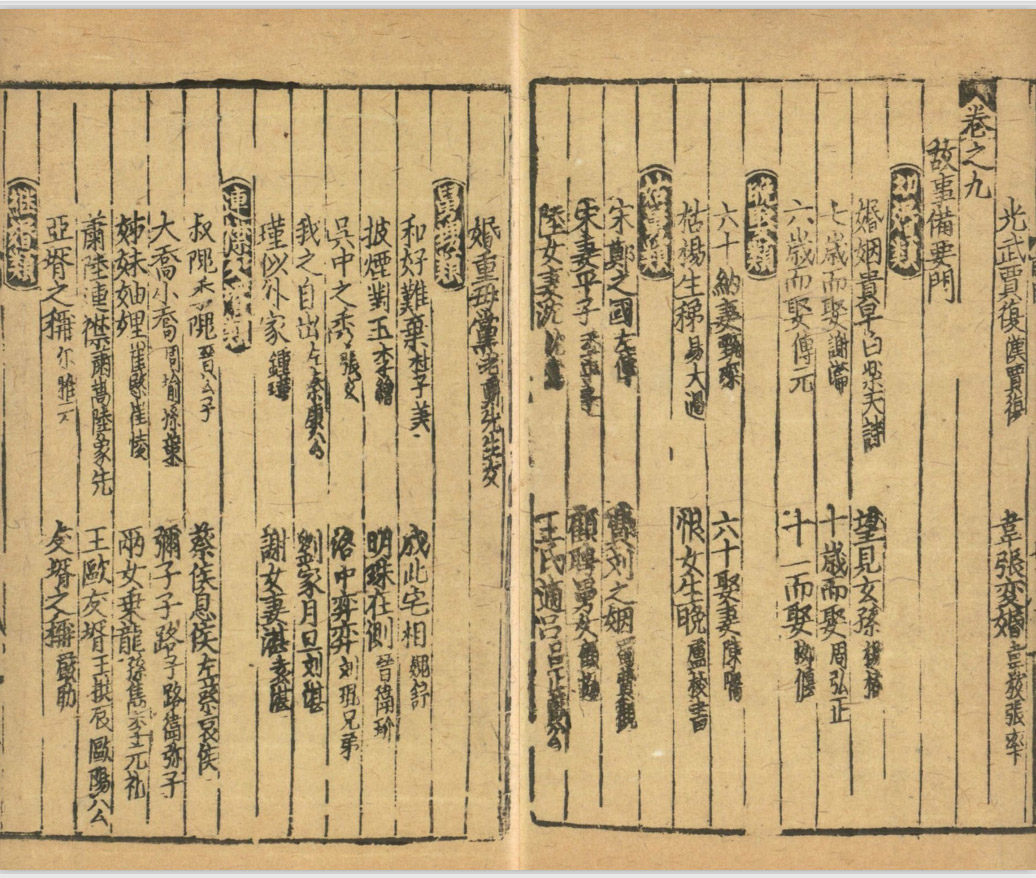 光武賈復漢賈復 韋張交婚韋放張率
卷之九
故事備要門
初婚類
婚姻貴早白樂天詩 望見女孫
七歲而娶謝 十歲而娶周弘正
六歲而娶傅元 十一而娶
晚娶類
六十納妻 六十娶妻陳
枯楊生稊易大過 恨女生晚盧校書
姑舅類
宋鄭之國左傳 之姻
宋妻平子 舅女
陸女妻沈 王氏適呂呂
婚重母黨老蘇先生女
舅甥類
和好難棄杜子美 成此宅相魏舒
披煙對玉李繪 明珠在側晉衛玠
吳中之秀張 洛中奕奕刘琨兄弟
我之自出左秦康公 劉家月旦刘
瑾似外家鍾瑾 謝女妻湛袁湛
連襟友婿類
叔隗季隗晉公子 蔡侯息侯左蔡哀侯
大喬小喬周瑜孫策 彌子子路子路衛弥子
姊妹妯娌崔 兩女乗龍孫雋李元礼
蕭陸連襟蕭萬陸象先 王歐友婿王拱辰歐陽公
亞婿之稱尔雅云 友婿之稱嚴助
継婚類